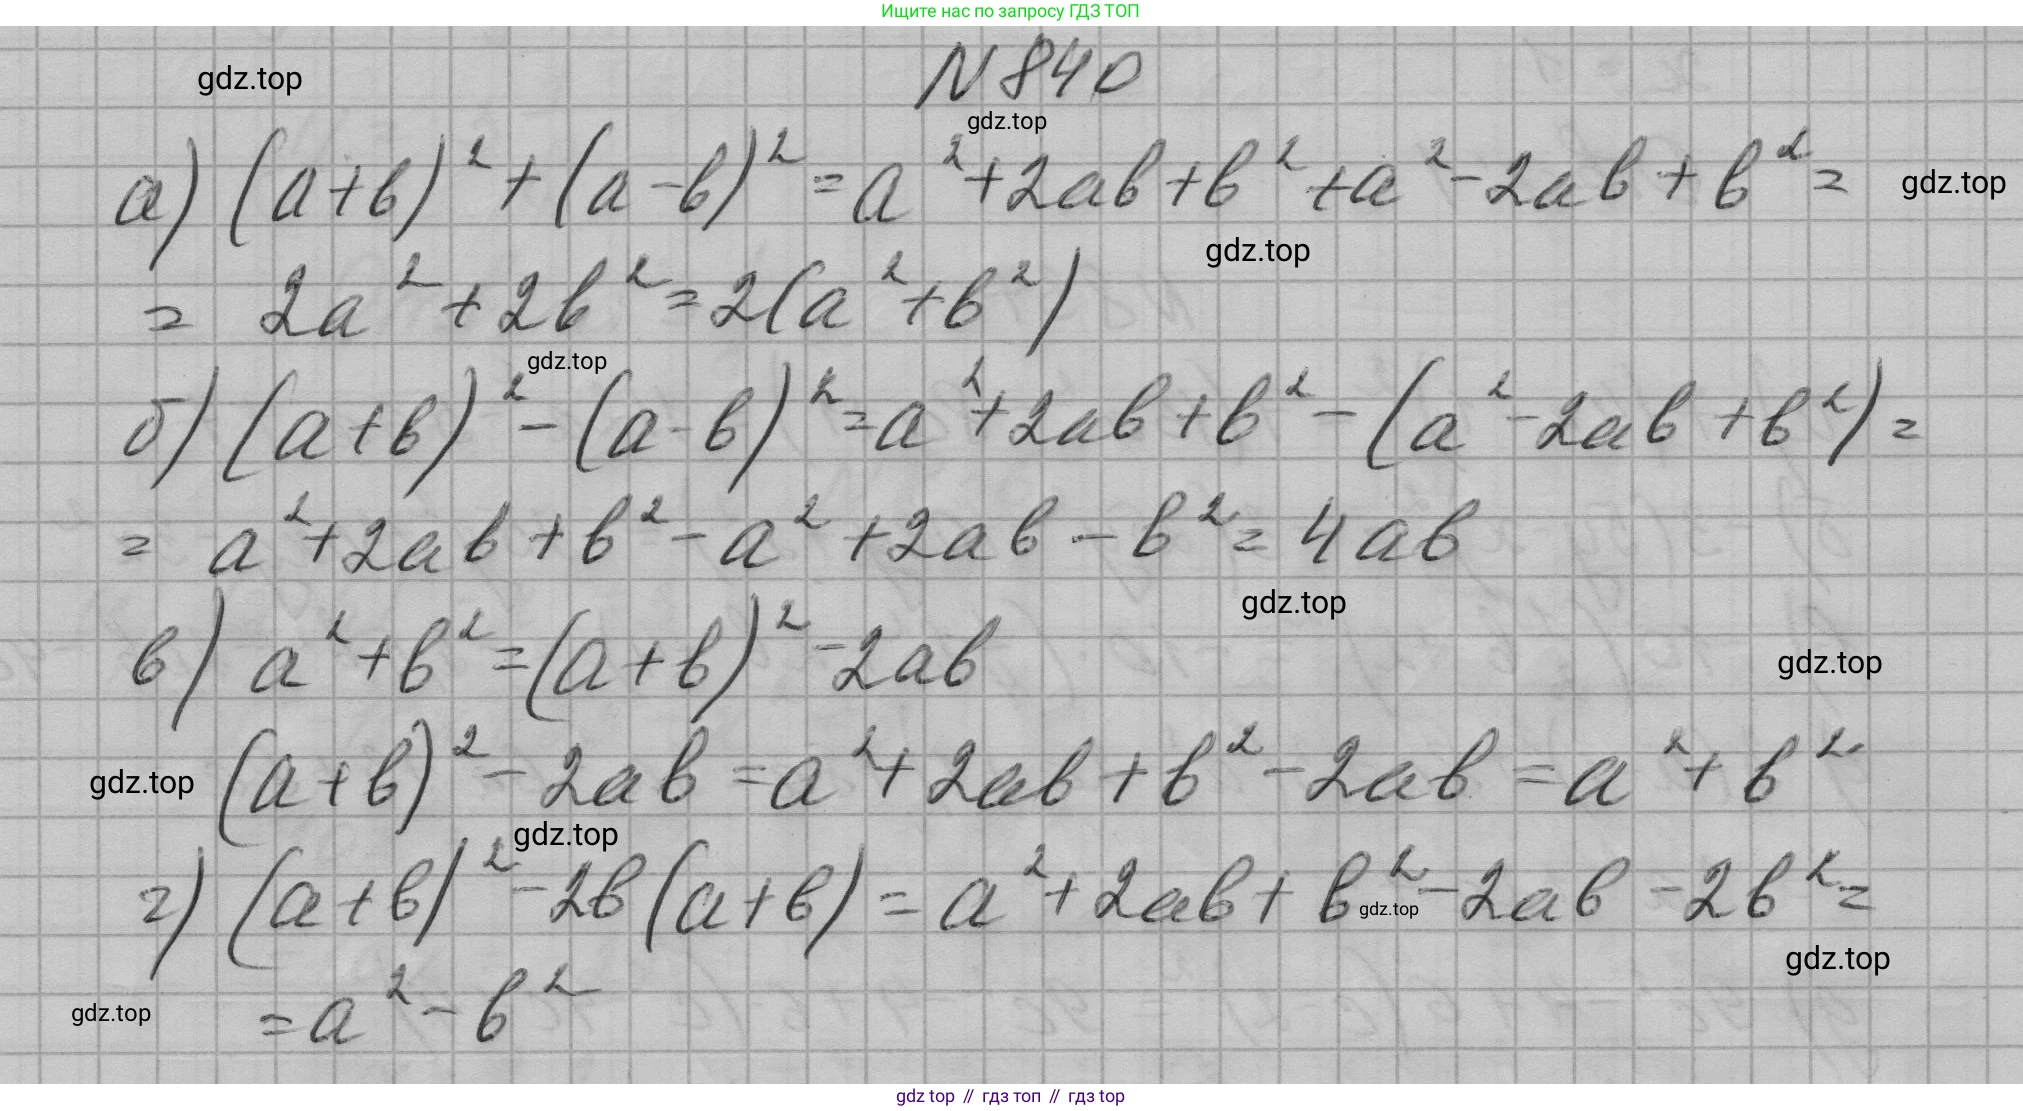 Ищите нас по запросу ГДЗ ТОП
N 840
gdz.top
gdz.top
а) (a+b)²+(a-b)²=a²+2ab+b²+a²-2ab+b²=
gdz.top
gdz.top
= 2a²+2b²=2(a²+b²)
gdz.top
б) (a+b)²-(a-b)²=a²+2ab+b²-(a²-2ab+b²)=
= a²+2ab+b²-a²+2ab-b²=4ab
gdz.top
в) a²+b²=(a+b)²-2ab
gdz.top
gdz.top
(a+b)²-2ab=a²+2ab+b²-2ab=a²+b²
gdz.top
г) (a+b)²-2b(a+b)=a²+2ab+b²-2ab-2b²=
gdz.top
gdz.top
gdz.top
=a²-b²
gdz.top // гдз топ // гдз top